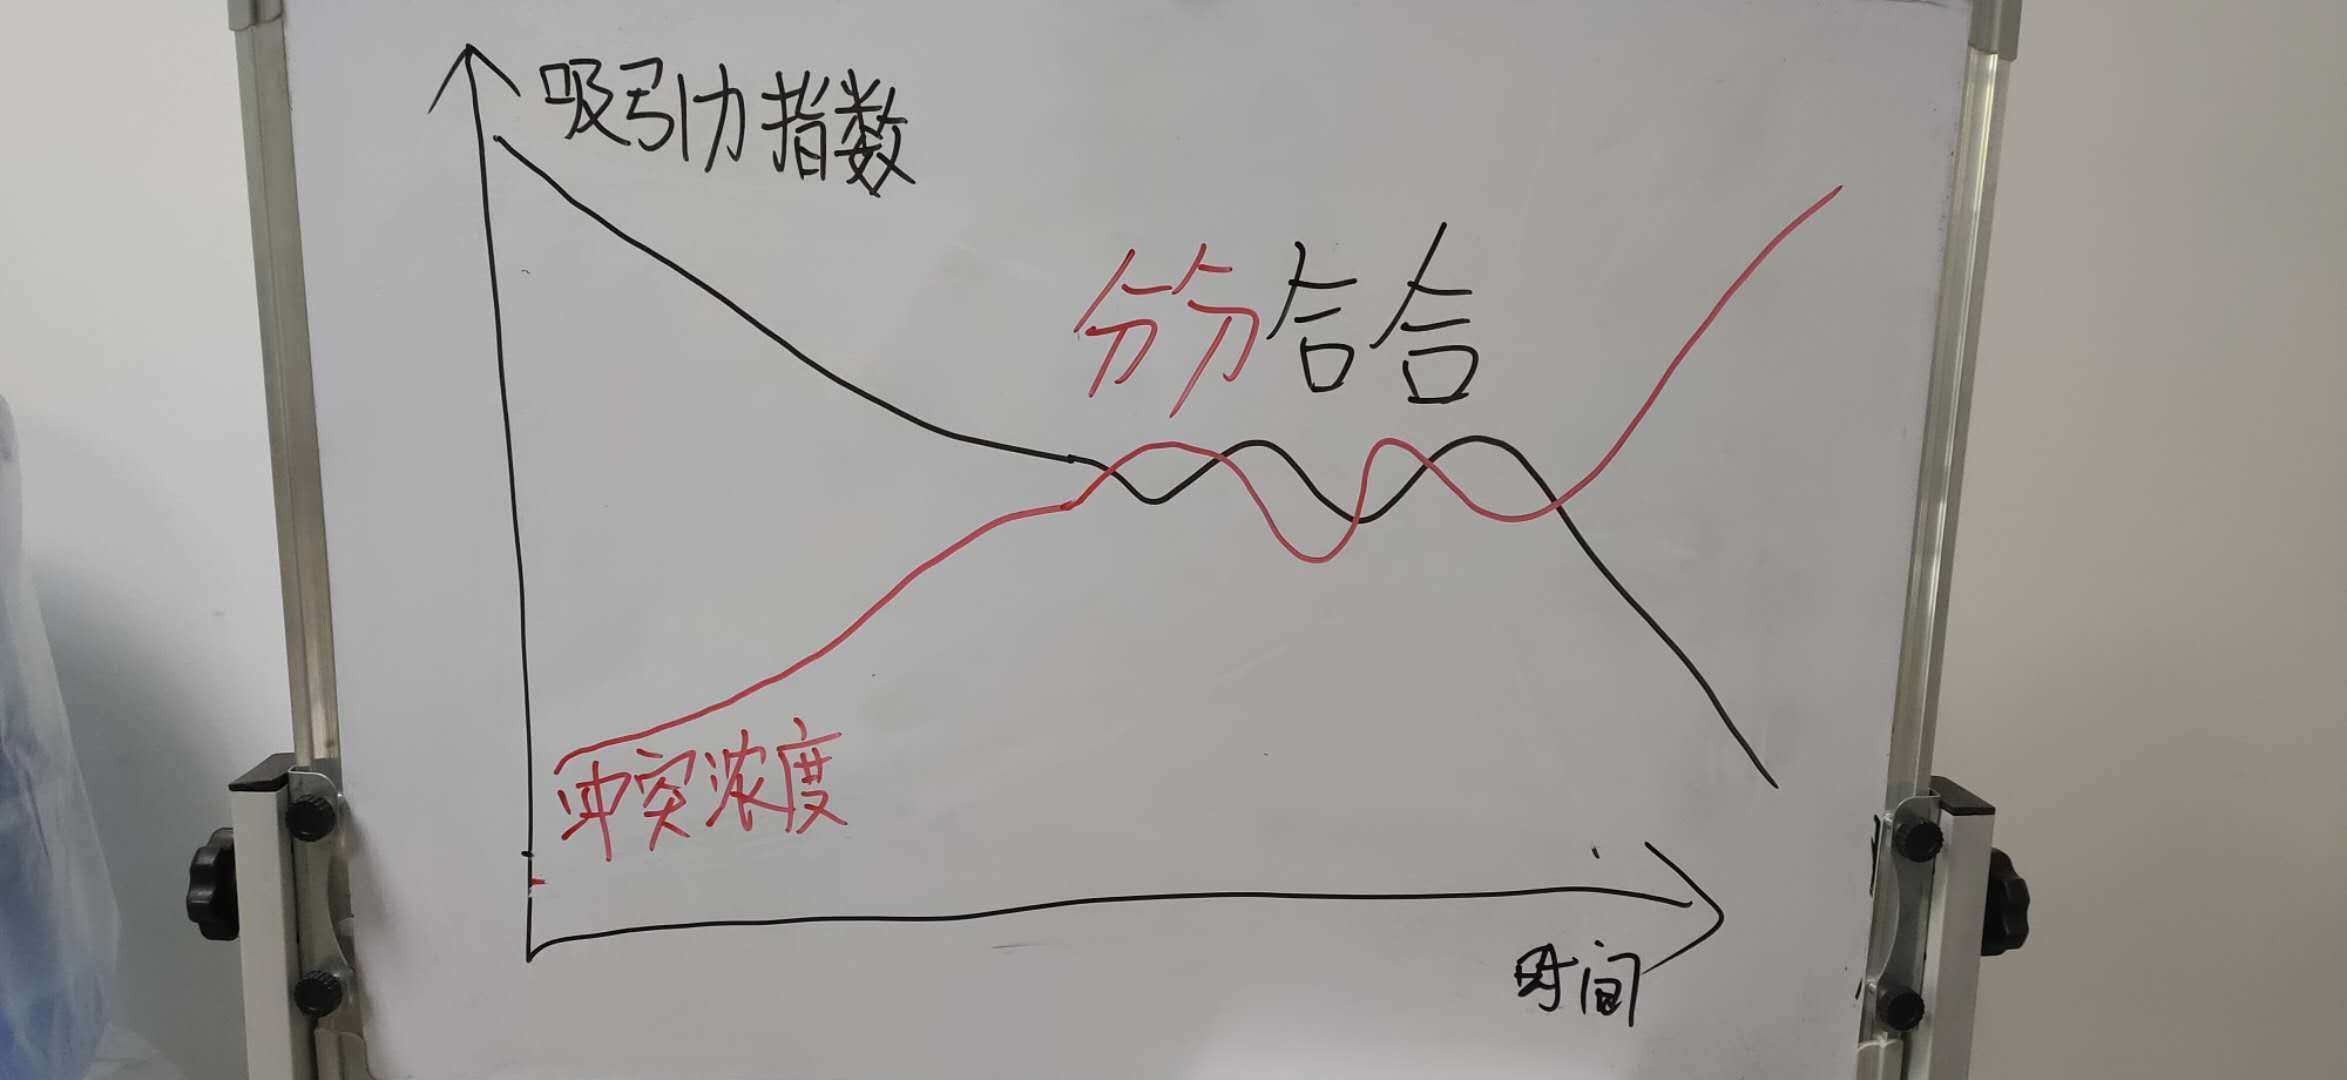 吸引力指数
分分合合
冲突浓度
时间